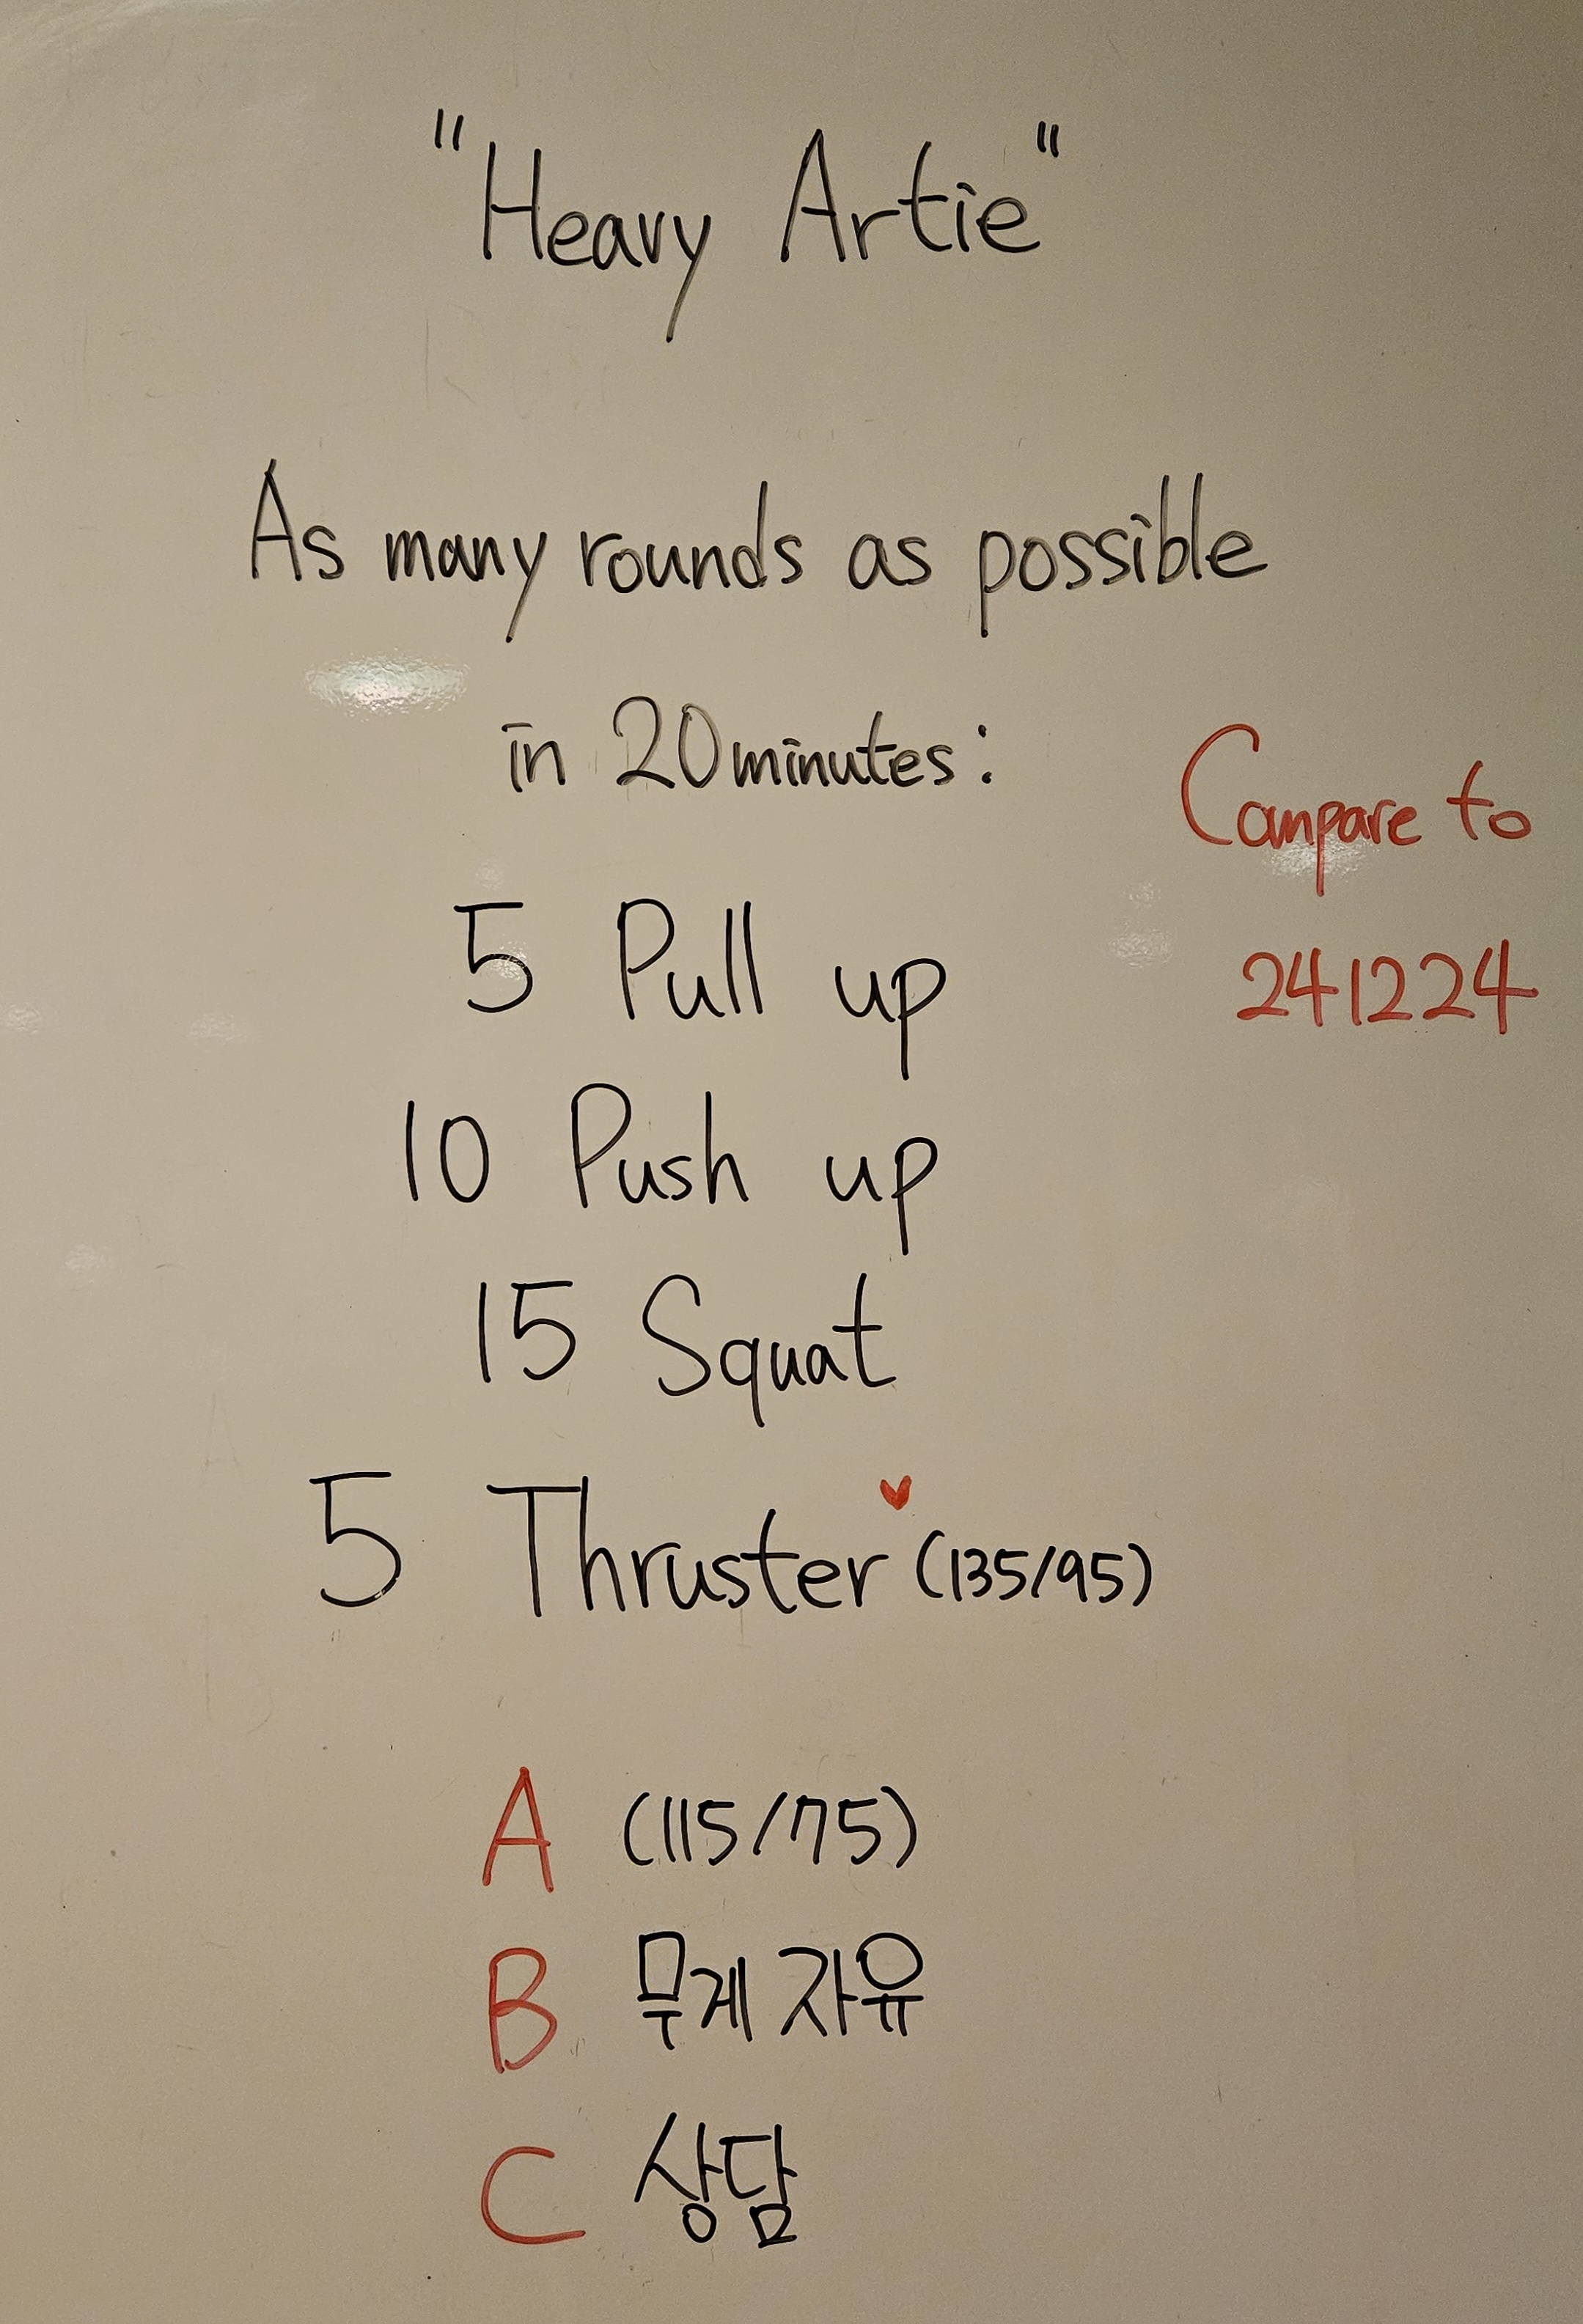 "Heavy Artie"
As many rounds as possible
in 20 minutes:
Compare to
241224
5 Pull up
10 Push up
15 Squat
5 Thruster (135/95)
A (115/75)
B 무게 자유
C 상담